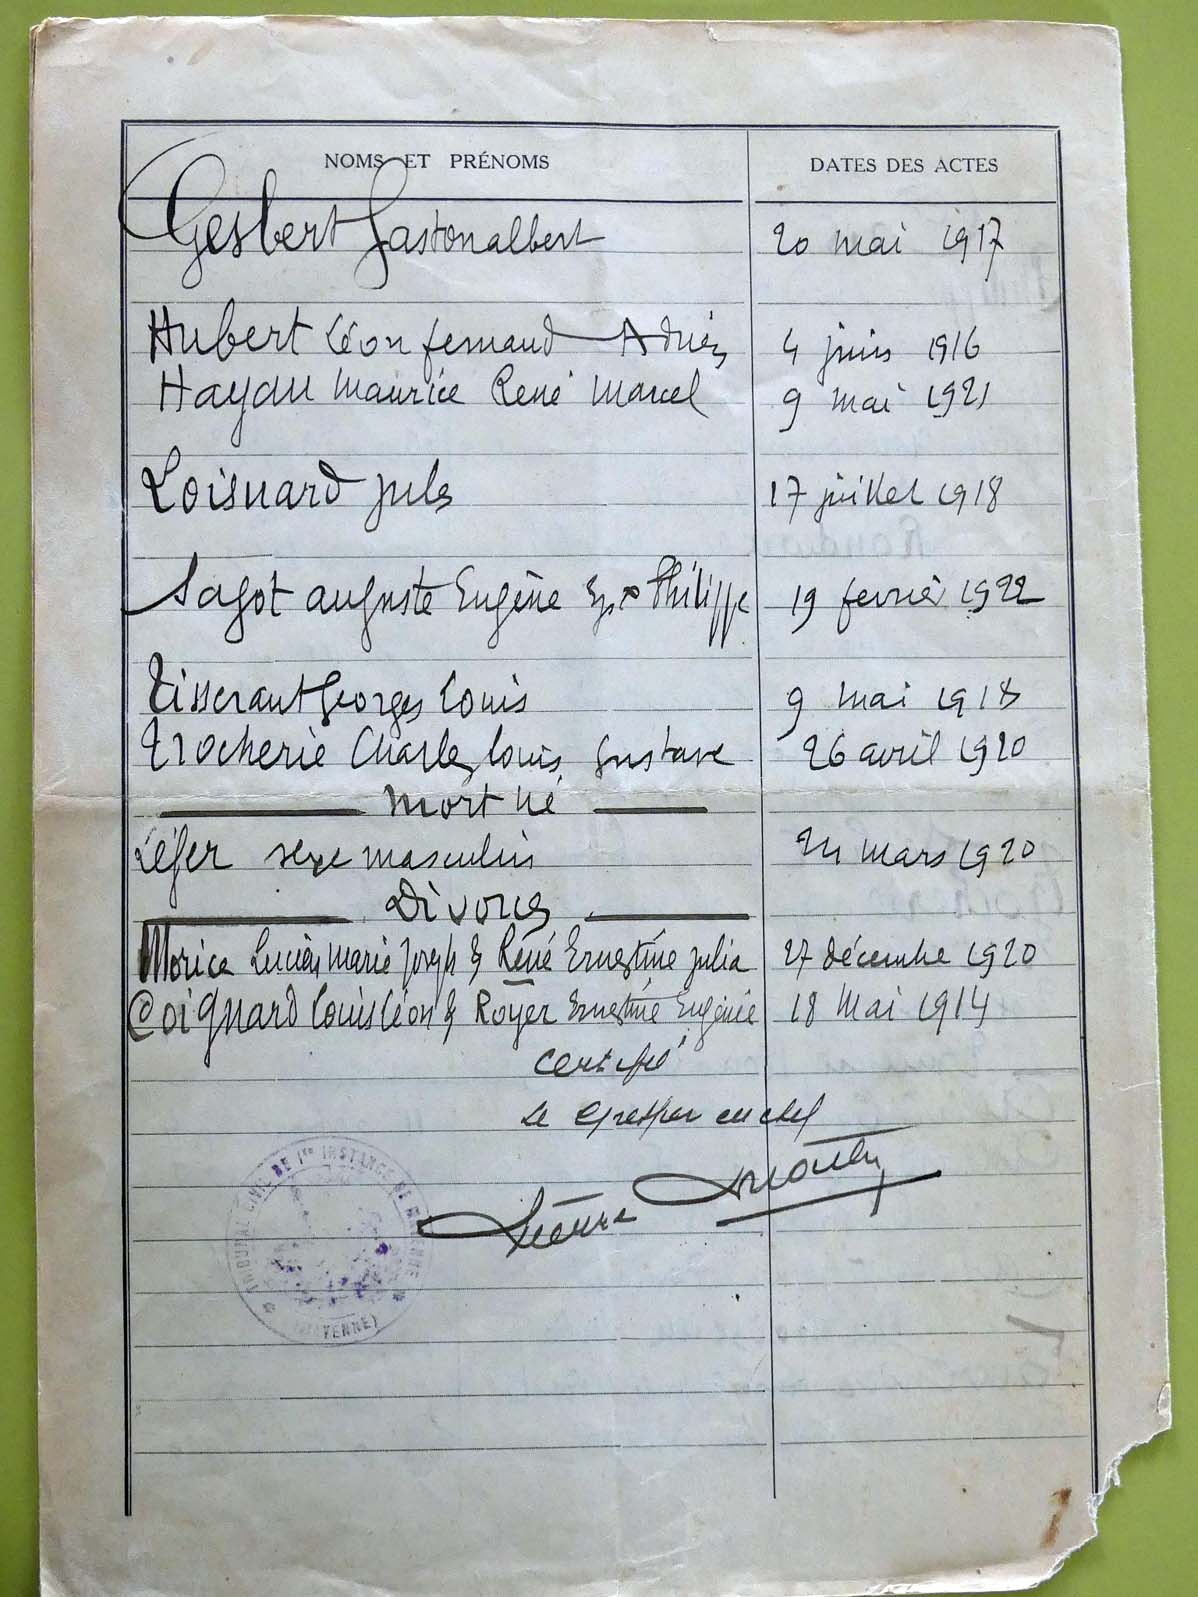 NOMS ET PRÉNOMS DATES DES ACTES
Gesbert Gaston albert 20 mai 1917
Hubert Léon fernand Adrien 4 juin 1916
Haydu maurice René Marcel 9 mai 1921
Loisnard jules 17 juillet 1918
Sagot auguste Eugène Epx Philippe 19 fevrier 1922
Tisserant Georges Louis 9 mai 1918
Trocherie Charles Louis Gustave 26 avril 1920
mort né
Léger sexe masculin 24 mars 1920
Divorces
Morice Lucien Marie Joseph & René Ernestine julia 27 décembre 1920
Coignard Louis Léon & Royer Ernestine Eugénie 18 Mai 1914
Certifié
Le Greffier en chef
TRIBUNAL CIVIL DE 1re INSTANCE DE MAYENNE
(MAYENNE)